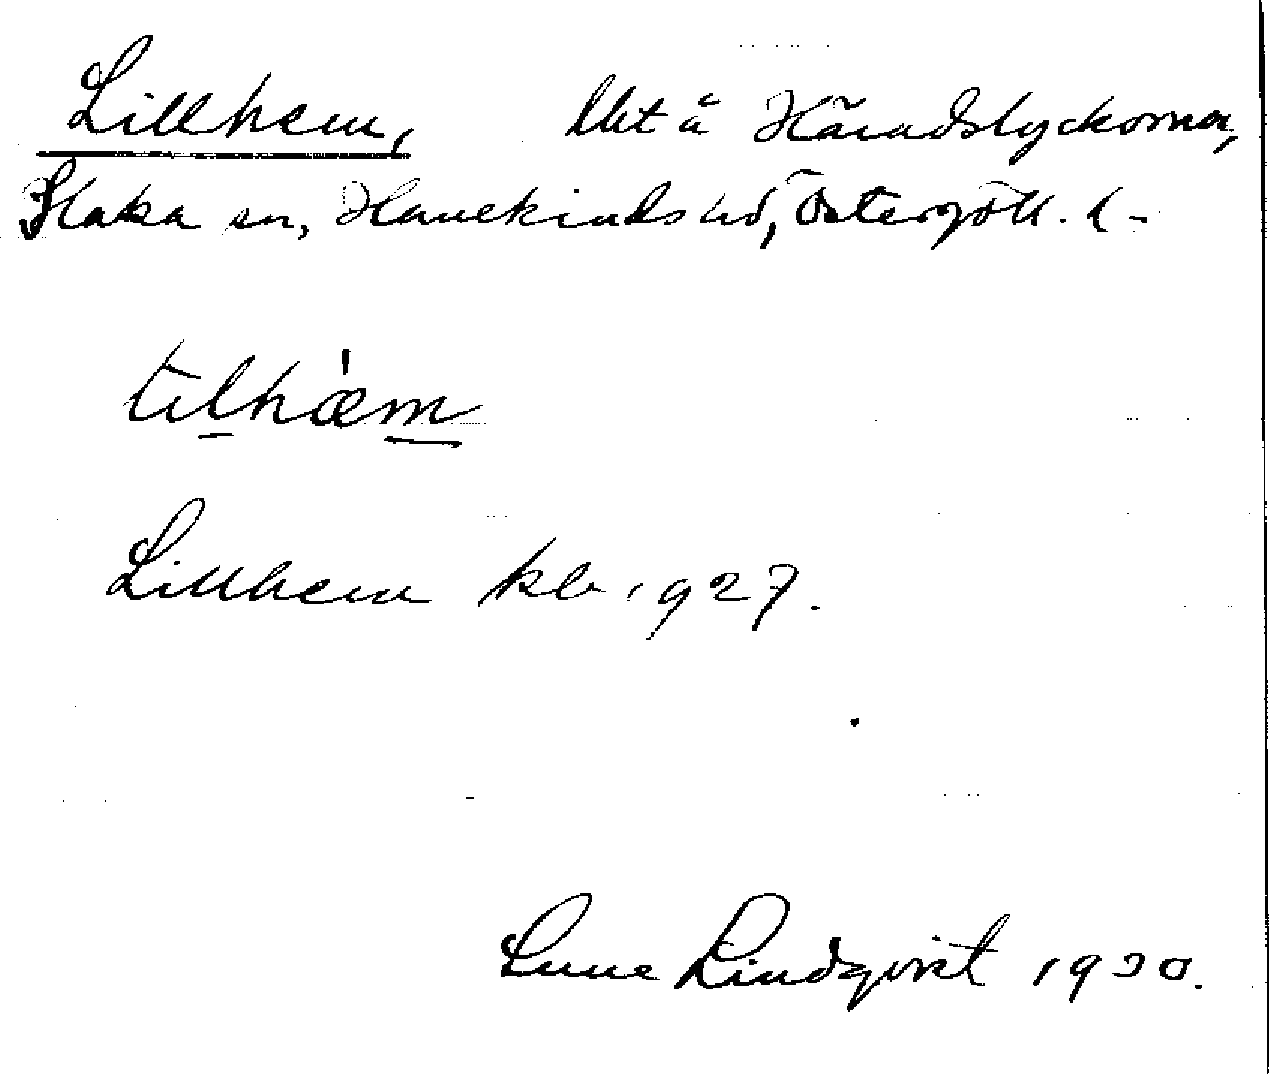 Lillhem, lht å Häradslyckorna,
Slaka sn, Hanekinds hd, Östergötl. l-
lilhæ̀m
Lillhem kb 1927.
Sune Lindqvist 1930.